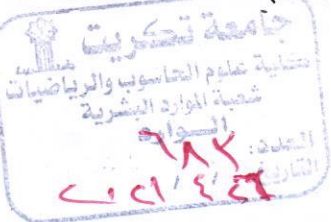 جامعة تكريت
كلية علوم الحاسوب والرياضيات
شعبة الموارد البشرية
الـــواردة
العدد: ٦٨٢
التاريخ: ٢٠٢١/٤/٢٦